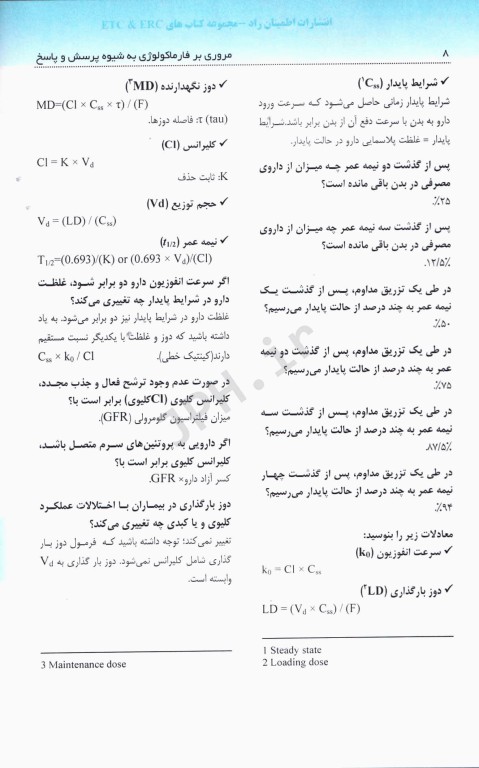 انتشارات اطمینان راد - مجموعه کتاب های ETC & ERC
۸
مروری بر فارماکولوژی به شیوه پرسش و پاسخ
✓ شرایط پایدار (Css¹)
شرایط پایدار زمانی حاصل می‌شود که سرعت ورود
دارو به بدن با سرعت دفع آن از بدن برابر باشد. شرایط
پایدار = غلظت پلاسمایی دارو در حالت پایدار.
پس از گذشت دو نیمه عمر چه میزان از داروی
مصرفی در بدن باقی مانده است؟
۲۵٪.
پس از گذشت سه نیمه عمر چه میزان از داروی
مصرفی در بدن باقی مانده است؟
۱۲/۵٪.
در طی یک تزریق مداوم، پس از گذشت یک
نیمه عمر به چند درصد از حالت پایدار می‌رسیم؟
۵۰٪.
در طی یک تزریق مداوم، پس از گذشت دو نیمه
عمر به چند درصد از حالت پایدار می‌رسیم؟
۷۵٪.
در طی یک تزریق مداوم، پس از گذشت سه
نیمه عمر به چند درصد از حالت پایدار می‌رسیم؟
۸۷/۵٪.
در طی یک تزریق مداوم، پس از گذشت چهار
نیمه عمر به چند درصد از حالت پایدار می‌رسیم؟
۹۴٪.
معادلات زیر را بنویسید:
✓ سرعت انفوزیون (k0)
k0 = Cl × Css
✓ دوز بارگذاری (LD²)
LD = (Vd × Css) / (F)
1 Steady state
2 Loading dose
✓ دوز نگهدارنده (MD³)
MD=(Cl × Css × τ) / (F)
τ (tau): فاصله دوزها.
✓ کلیرانس (Cl)
Cl = K × Vd
K: ثابت حذف
✓ حجم توزیع (Vd)
Vd = (LD) / (Css)
✓ نیمه عمر (t1/2)
T1/2=(0.693)/(K) or (0.693 × Vd)/(Cl)
اگر سرعت انفوزیون دارو دو برابر شود، غلظت
دارو در شرایط پایدار چه تغییری می‌کند؟
غلظت دارو در شرایط پایدار نیز دو برابر می‌شود. به یاد
داشته باشید که دوز و غلظت با یکدیگر نسبت مستقیم
دارند(کینتیک خطی). Css × k0 / Cl
در صورت عدم وجود ترشح فعال و جذب مجدد،
کلیرانس کلیوی (Cl کلیوی) برابر است با؟
میزان فیلتراسیون گلومرولی (GFR).
اگر دارویی به پروتئین‌های سرم متصل باشد،
کلیرانس کلیوی برابر است با؟
کسر آزاد دارو× GFR.
دوز بارگذاری در بیماران با اختلالات عملکرد
کلیوی و یا کبدی چه تغییری می‌کند؟
تغییر نمی‌کند؛ توجه داشته باشید که فرمول دوز بار
گذاری شامل کلیرانس نمی‌شود. دوز بار گذاری به Vd
وابسته است.
3 Maintenance dose
JPH.ir